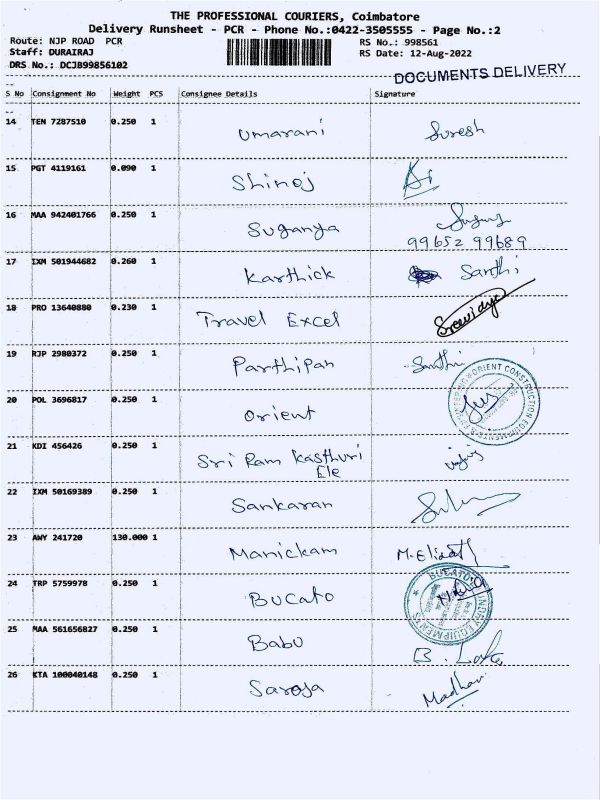 THE PROFESSIONAL COURIERS, Coimbatore
Delivery Runsheet - PCR - Phone No.:0422-3505555 - Page No.:2
Route: NJP ROAD PCR RS No.: 998561
Staff: DURAIRAJ RS Date: 12-Aug-2022
DRS No.: DCJB99856102
DOCUMENTS DELIVERY
S No Consignment No Weight PCS Consignee Details Signature
14 TEN 7287510 0.250 1 Umarani Suresh
15 PGT 4119161 0.090 1 Shinoj
16 MAA 942401766 0.250 1 Suganya
99652 99689
17 IXM 501944682 0.260 1 Karthick Santhi
18 PRO 13640880 0.230 1 Travel Excel Sreevidya
19 RJP 2980372 0.250 1 Parthipan Santhi
20 POL 3696817 0.250 1 Orient
ORIENT CONSTRUCTION EQUIPMENTS &
21 KDI 456426 0.250 1 Sri Ram Kasthuri
Ele
22 IXM 50169389 0.250 1 Sankaran
23 AWY 241720 130.000 1 Manickam
24 TRP 5759978 0.250 1 Bucato
BUCATO LAUNDRY EQUIPMENTS
25 MAA 561656827 0.250 1 Babu
26 KTA 100040148 0.250 1 Saroja Madhavi